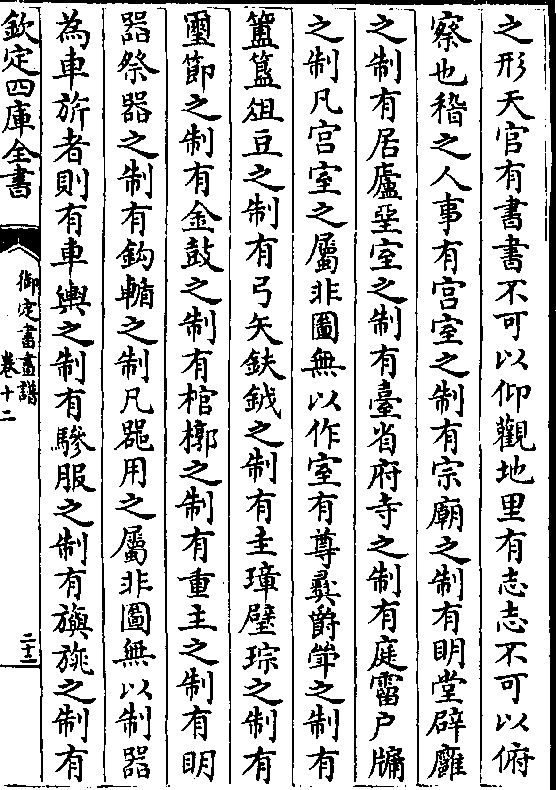 之形天官有書書不可以仰觀地里有志志不可以俯
察也稽之人事有宫室之制有宗廟之制有明堂辟廱
之制有居廬堊室之制有臺省府寺之制有庭霤户牖
之制凡宫室之屬非圖無以作室有尊彞爵斚之制有
簠簋俎豆之制有弓矢鈇鉞之制有圭璋璧琮之制有
璽節之制有金鼓之制有棺槨之制有重主之制有明
器祭器之制有鈎輴之制凡器用之屬非圖無以制器
為車旂者則有車輿之制有驂服之制有旟旐之制有
欽定四庫全書
御定書畫譜
卷十二
二十二